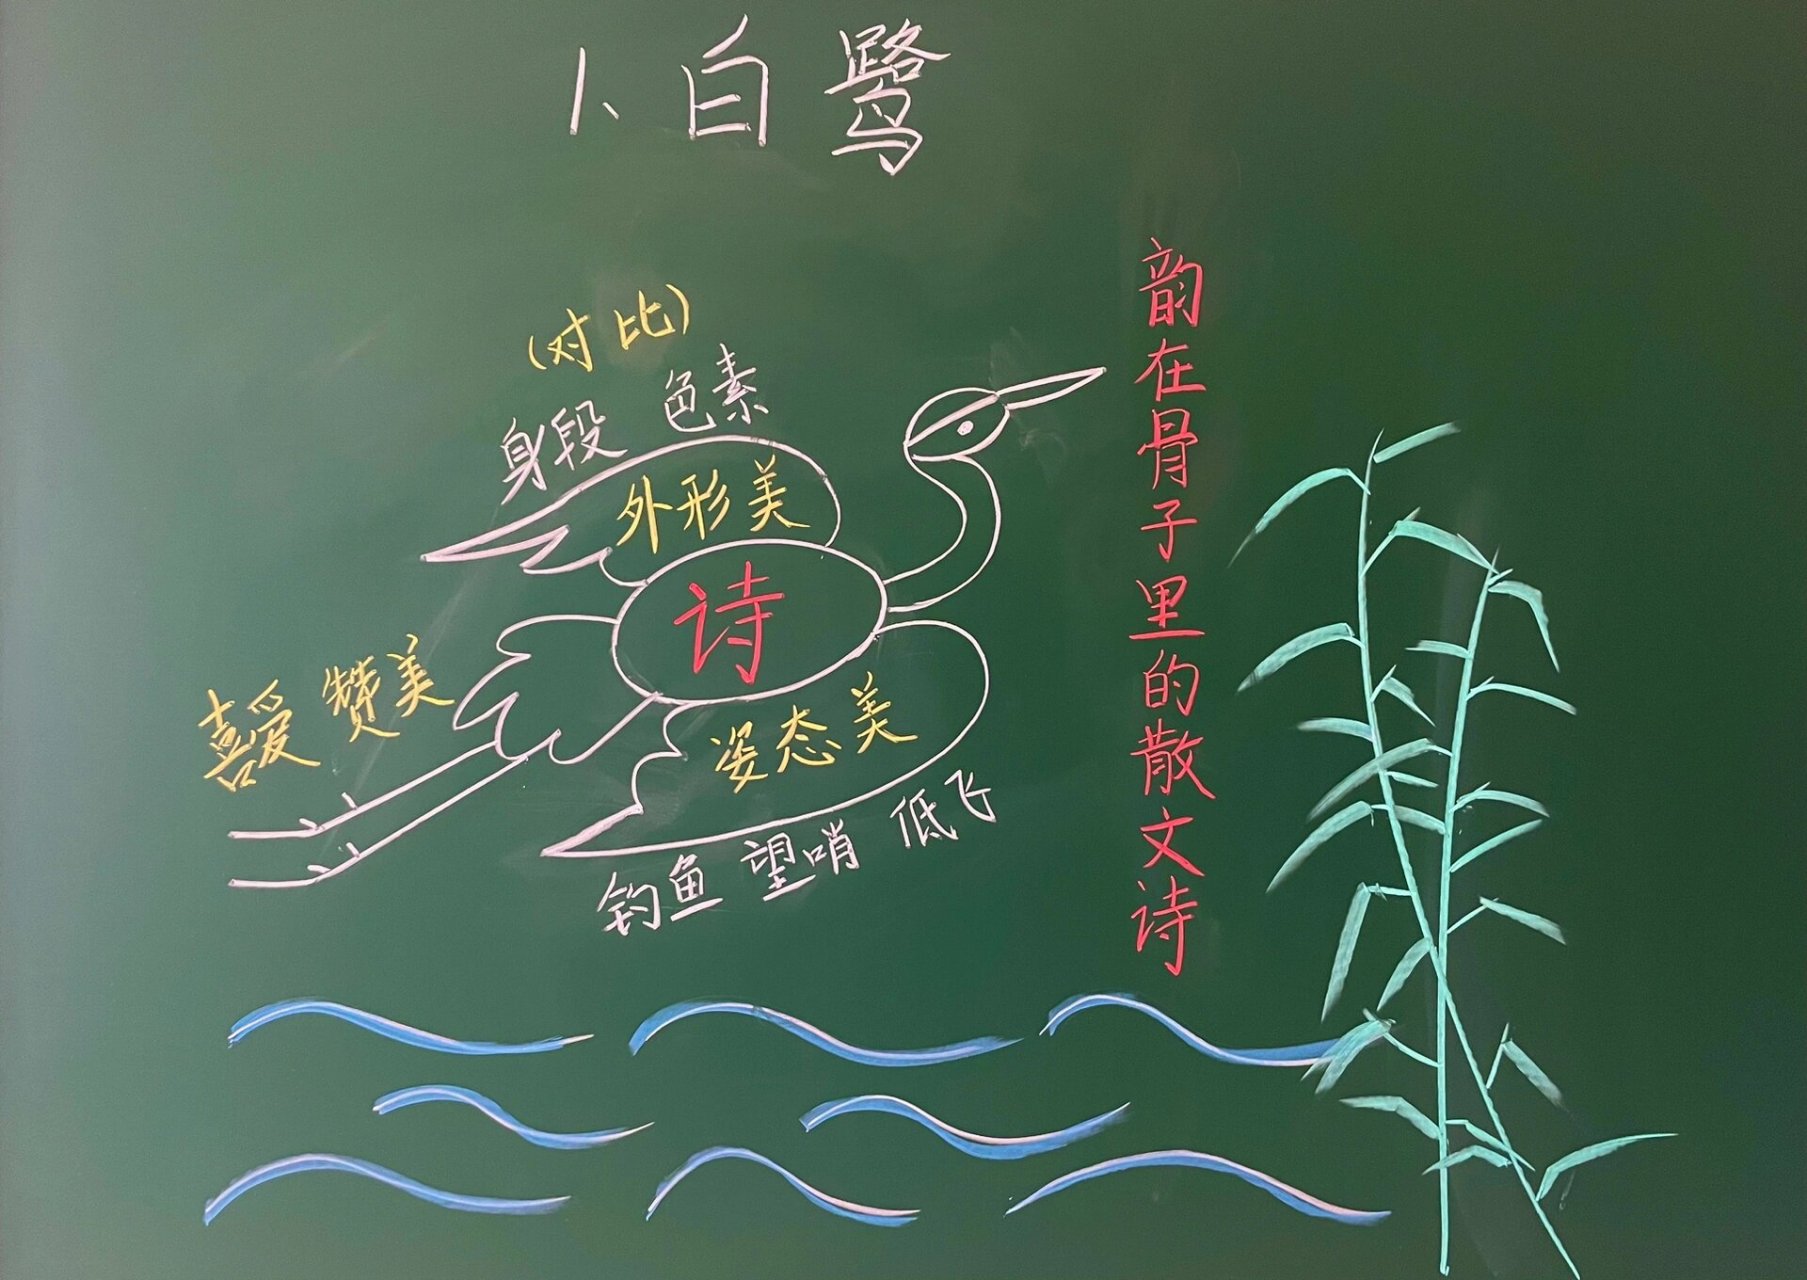 1、白鹭
(对比)
身段 色素
外形美
诗
喜爱 赞美
姿态美
钓鱼 望哨 低飞
韵在骨子里的散文诗